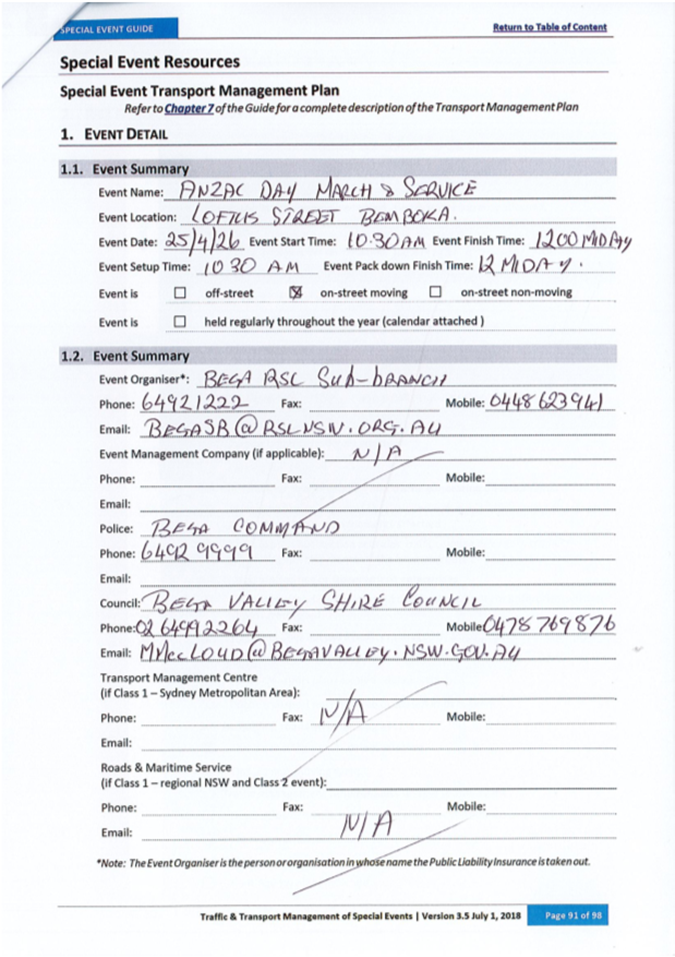 SPECIAL EVENT GUIDE
Return to Table of Content
Special Event Resources
Special Event Transport Management Plan
Refer to Chapter 7 of the Guide for a complete description of the Transport Management Plan
1. EVENT DETAIL
1.1. Event Summary
Event Name: ANZAC DAY MARCH & SERVICE
Event Location: LOFTUS STREET BEMBOKA.
Event Date: 25/4/26 Event Start Time: 10.30AM Event Finish Time: 1200 MIDAY
Event Setup Time: 10 30 AM Event Pack down Finish Time: 12 MIDAY.
Event is ☐ off-street ☒ on-street moving ☐ on-street non-moving
Event is ☐ held regularly throughout the year (calendar attached )
1.2. Event Summary
Event Organiser*: BEGA RSL Sub-bRANCH
Phone: 64921222 Fax: Mobile: 0448 623941
Email: BEGASB@RSLNSW.ORG.AU
Event Management Company (if applicable): N/A
Phone: Fax: Mobile:
Email:
Police: BEGA COMMAND
Phone: 6492 9999 Fax: Mobile:
Email:
Council: BEGA VALLEY SHIRE COUNCIL
Phone: 02 64992264 Fax: Mobile 0478 769876
Email: MMccLOUD@BEGAVALLEY.NSW.GOV.AU
Transport Management Centre
(if Class 1 – Sydney Metropolitan Area):
Phone: Fax: N/A Mobile:
Email:
Roads & Maritime Service
(if Class 1 – regional NSW and Class 2 event):
Phone: Fax: Mobile:
Email: N/A
*Note: The Event Organiser is the person or organisation in whose name the Public Liability Insurance is taken out.
Traffic & Transport Management of Special Events | Version 3.5 July 1, 2018 Page 91 of 98